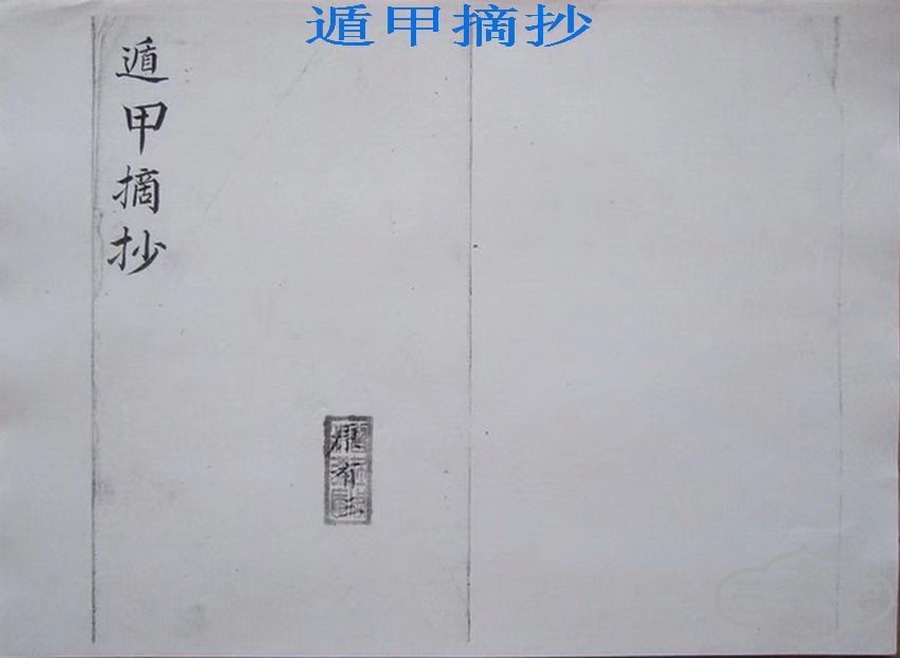 遁甲摘抄
遁甲摘抄